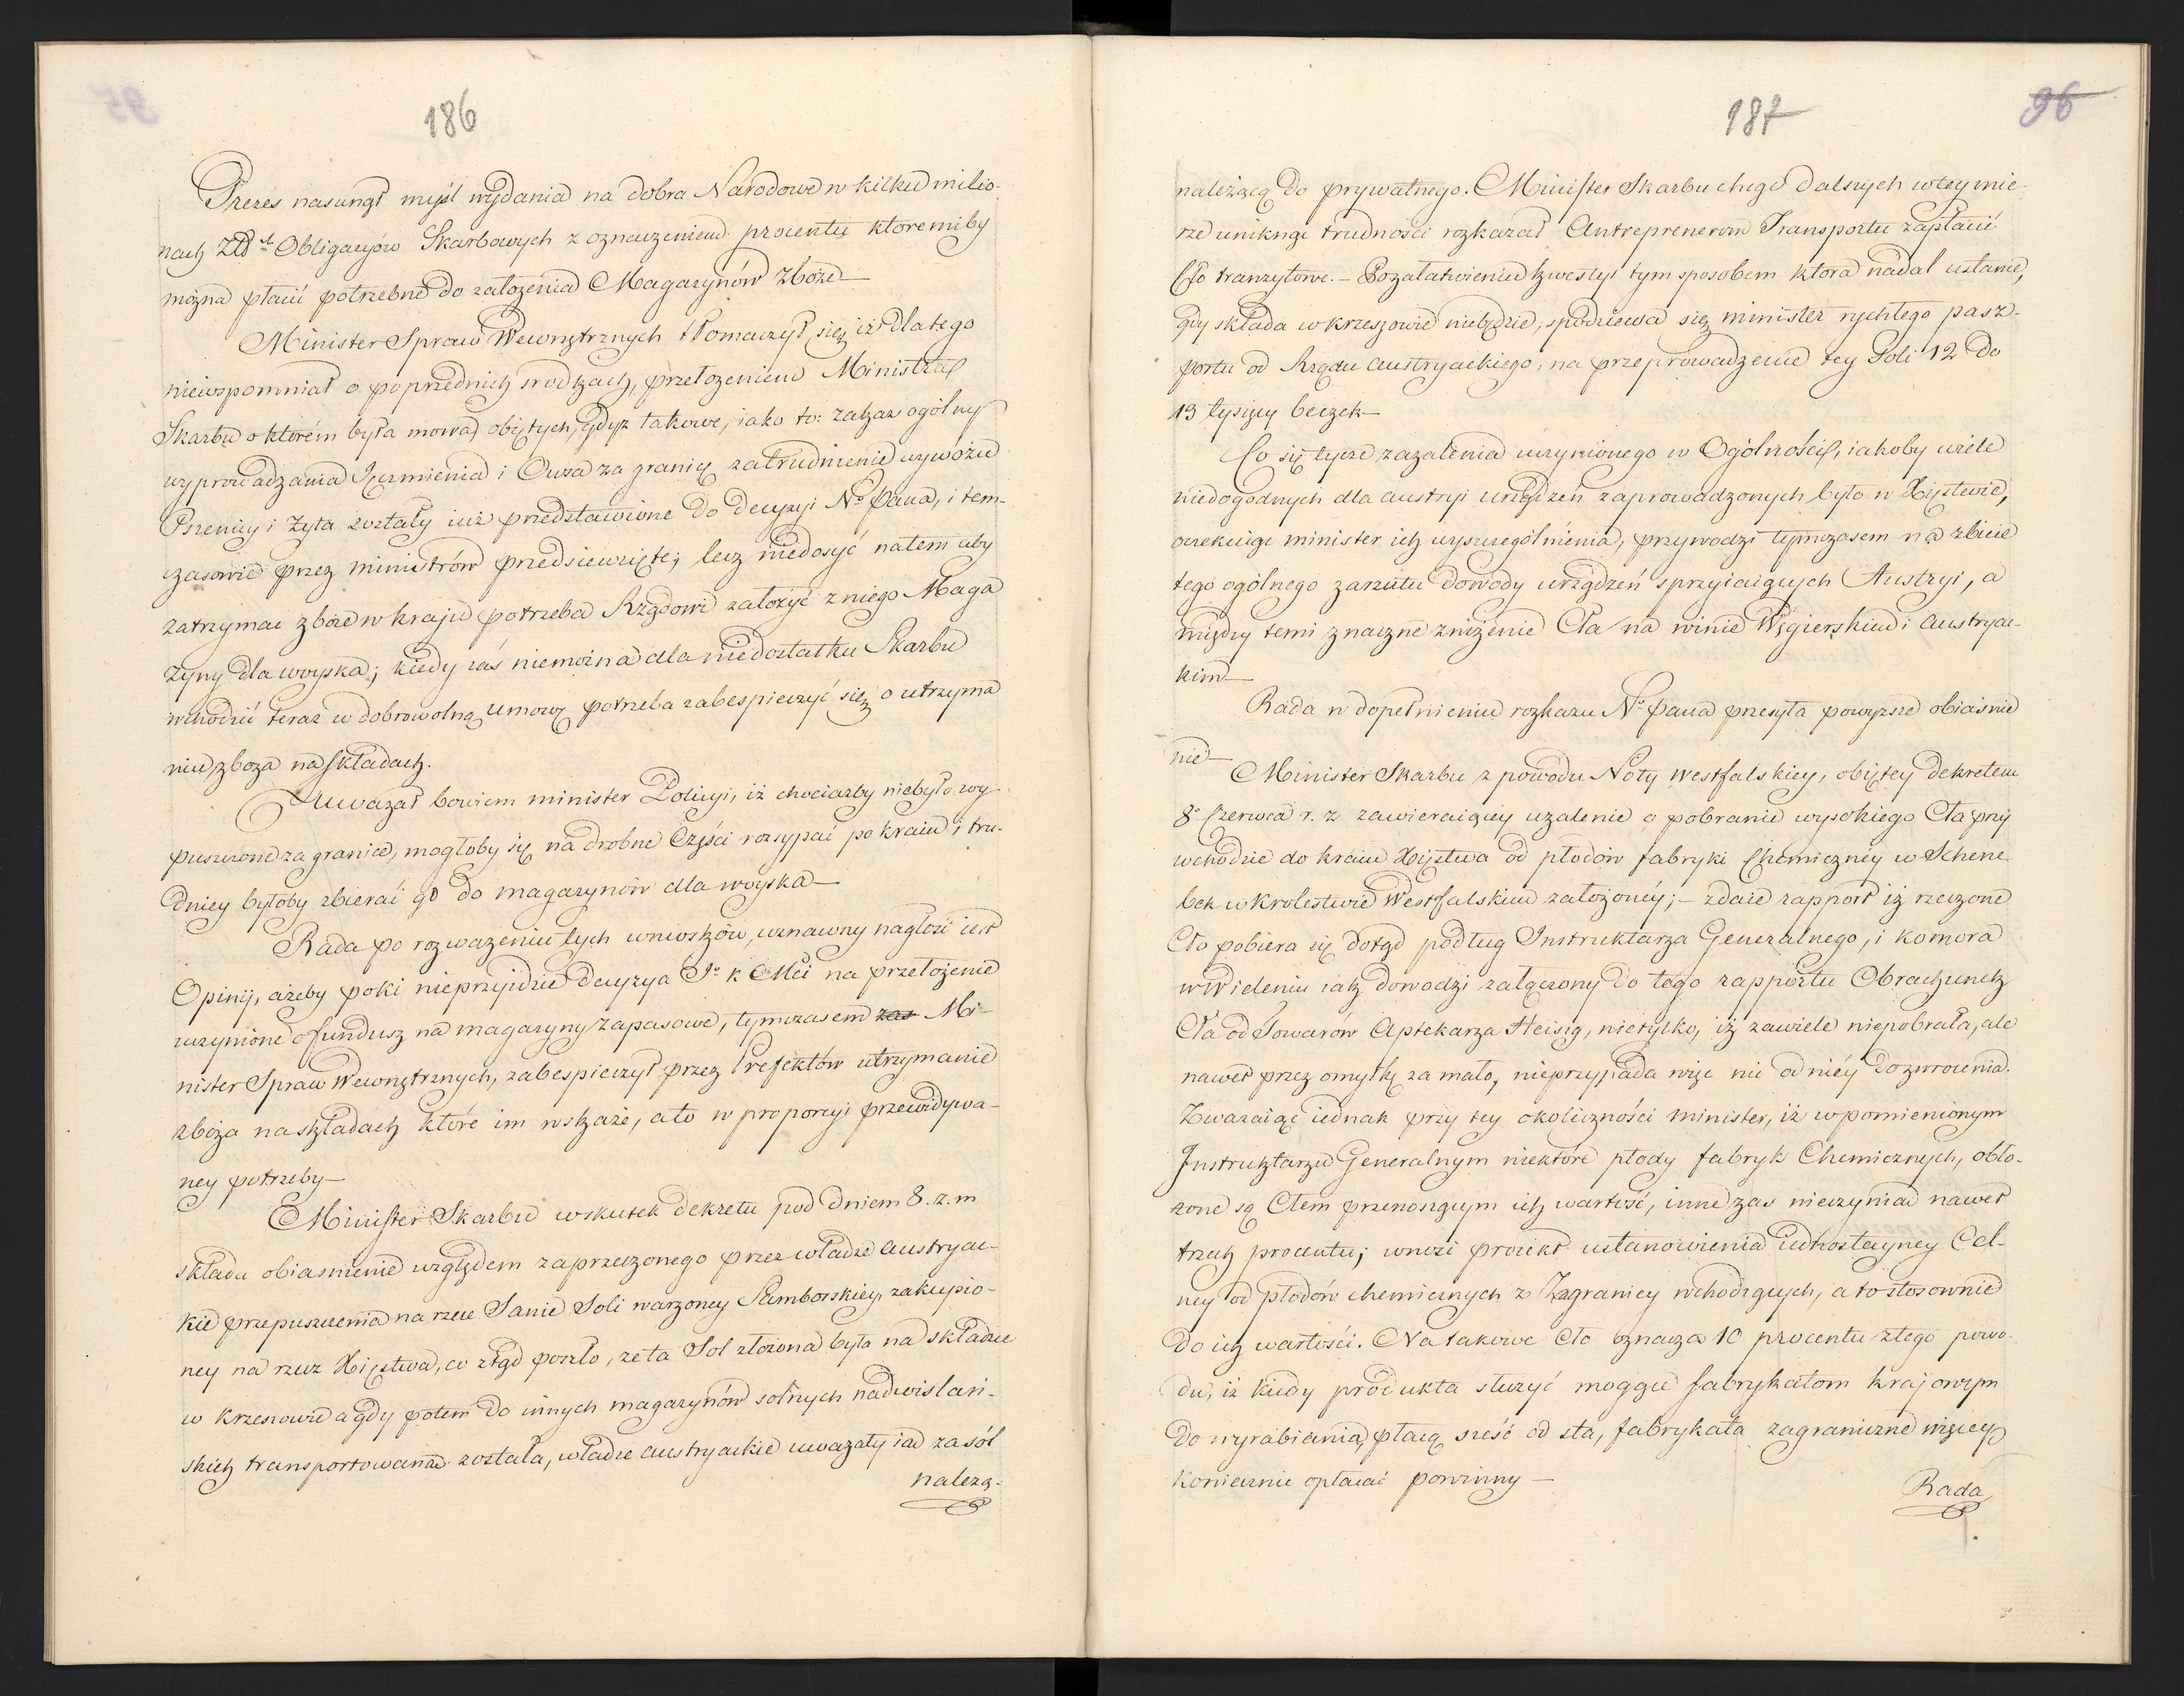 186
Prezes nasunął myśl wydania na dobra Narodowe w kilku milio-
nach Złt Obligacyów Skarbowych z oznaczeniem procentu ktoremiby
można płacić potrzebne do założenia Magazynów Zboże—
Minister Spraw Wewnętrznych tłomaczył się, iż dlatego
niewspomniał o poprzednich srodkach, przełożeniem Ministra
Skarbu o ktorém była mowa, obiętych, gdyż takowe, iako to: zakaz ogólny
wyprowadzania Jęczmienia i Owsa za granicę zatrudnienie wywozu
Pszenicy i Żyta zostały iuż przedstawione do decyzyi No Pana, i tem-
czasowie przez ministrów przedsięwzięte; lecz niedosyć natem aby
zatrzymac zboże w kraju potrzeba Rządowi założyć z niego Maga
zyny dla woyska; kiedy zaś niemożna dla niedostatku Skarbu
wchodzić teraz w dobrowolną umowę potrzeba zabespieczyć się, o utrzyma
niu zboża na składach.
Uważał bowiem minister Policyi, iż chociażby niebyło wy-
puszczone za granice, mogłoby się na drobne Części rozsypać po kraiu i tru-
dniey byłoby zbierać go do magazynów dla woyska—
Rada po rozważeniu tych wniosków, uznawny nagłość iest
Opinij, ażeby poki nieprzyidzie decyzya Jo K Mci na przełożenie
uczynione o fundusz na magazyny zapasowe, tymczasem zas Mi-
nister Spraw Wewnętrznych, zabespieczył przez Prefektów utrzymanie
zboża na składach które im wskaże, a to w proporcyi przewidywa-
ney potrzeby—
Minister Skarbu wskutek dekretu pod dniem 8. z. m
składa obiasnienie względem zaprzeczonego przez władze Austryac-
kie przepuszczenia na rzece Sanie Soli warzoney Samborskiey, zakupio-
ney na rzecz Xięstwa, co ztąd poszło, ze ta Sol złożona była na składzie
w Krzeszowie a gdy potem do innych magazynów solnych nadwislań-
skich transportowana została, władze austryackie uważały ią za sól
należą-
187
96
należącą do prywatnego. Minister Skarbu chcąc dalszych w tey mie-
rze uniknąć trudności rozkazał Antreprenerom Transportu zapłacić
Cło tranzytowe.— Pozałatwieniu kwestyi tym sposobem ktora nadal ustanie,
gdy składa w krzeszowie niebędzie, spodziewa się minister rychłego pasz-
portu od Rządu austryackiego, na przeprowadzenie tey Soli 12 do
13 tysięcy beczek—
Co się tycze zażalenia uczynionego w Ogólności, iakoby wiele
niedogodnych dla austryi urządzeń zaprowadzonych było w Xięstwie,
oczekuiąc minister ich wyszczególnienia, przywodzi tymczasem na zbicie
tego ogólnego zarzutu dowody urządzeń sprzyiaiących Austryi, a
między temi znaczne zniżenie Cła na winie Węgierskim i Austryac-
kim—
Rada w dopełnieniu rozkazu No Pana przesyła powyższe obiaśnie
nie—
Minister Skarbu z powodu Noty westfalskiey, obiętey dekretem
8o Czerwca r. z zawieraiącey uzalenie o pobranie wysokiego Cła przy
wchodzie do kraiu Xięstwa od płodów fabryki Chemiczney w Schene-
bek w Krolestwie Westfalskim założoney;— zdaie rapport iż rzeczone
Cło pobiera się dotąd podług Instruktarza Generalnego, i komora
w Wieleniu iak dowodzi załączony do tego rapportu Obrachunek
Cła od Towarów Aptekarza Heisig, nietylko, iż zawiele niepobrała, ale
nawet przez omyłkę za mało, nieprzypada więc nic od niéy do zwrocenia.
Zważaiąc iednak przy tey okoliczności minister, iż w pomienionym
Instruktarzu Generalnym niektóre płody fabryk Chemicznych, obło-
zone są Cłem przenoszącym ich wartość, inne zas nieczynia nawet
trzech procentu; wnosi proiekt ustanowienia iednostayney Cel-
ney od płodów chemicznych z Zagranicy wchodzących, a to stosownie
do ich wartości. Na takowe Cło oznacza 10 procentu z tego powo-
du, iż kiedy produkta służyć mogące fabrykatom krajowym
do wyrabiania, płacą sześć od sta, fabrykata zagraniczne więcey
koniecznie opłacać powinny —
Rada